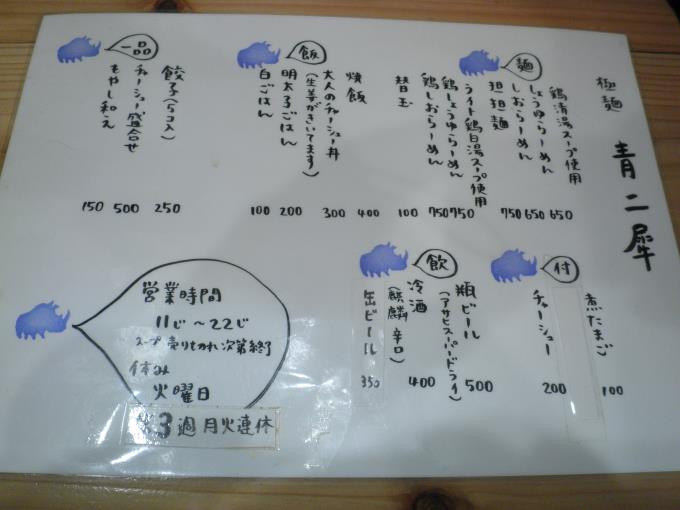 極麺 青二犀
麺
鶏清湯スープ使用
しょうゆらーめん 650
しおらーめん 650
担担麺 750
ライト鶏白湯スープ使用
鶏しょうゆらーめん 750
鶏しおらーめん 750
替玉 100
飯
焼飯 400
大人のチャーシュー丼 300
(生姜がきいてます)
明太子ごはん 200
白ごはん 100
一品
餃子(5コ入) 250
チャーシュー盛合せ 500
もやし和え 150
付
煮たまご 100
チャーシュー 200
飲
瓶ビール 500
(アサヒスーパードライ)
冷酒 400
(麒麟 辛口)
缶ビール 350
営業時間
11じ～22じ
スープ売りきれ次第終了
休み
火曜日
第3週月火連休